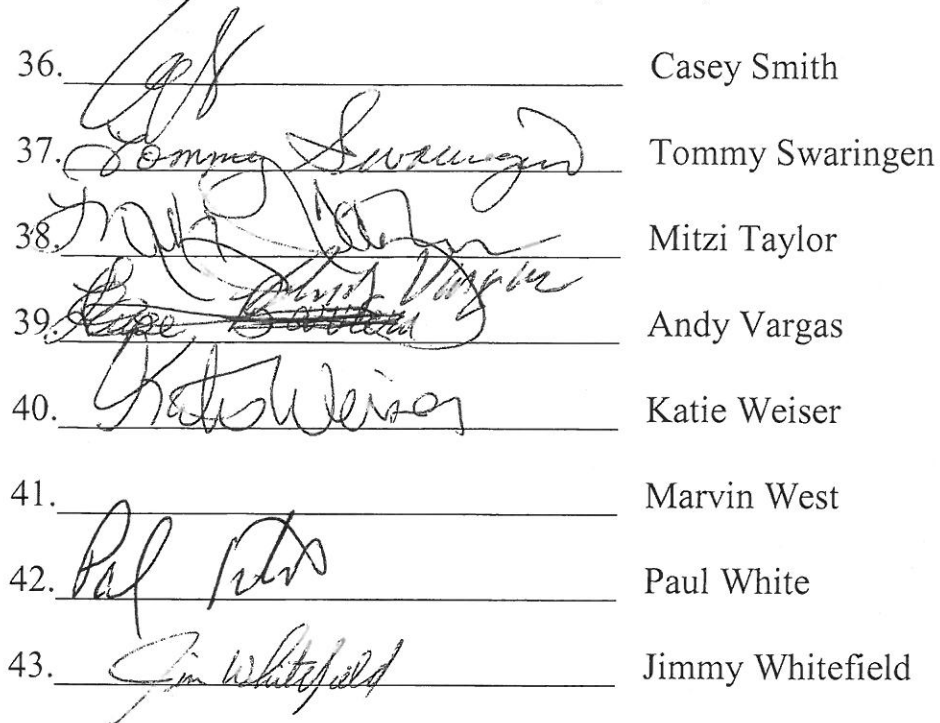 36. Casey Smith
37. Tommy Swaringen Tommy Swaringen
38. Mitzi Taylor
39. Vargas Andy Vargas
40. Katie Weiser Katie Weiser
41. Marvin West
42. Paul White
43. Jim Whitefield Jimmy Whitefield